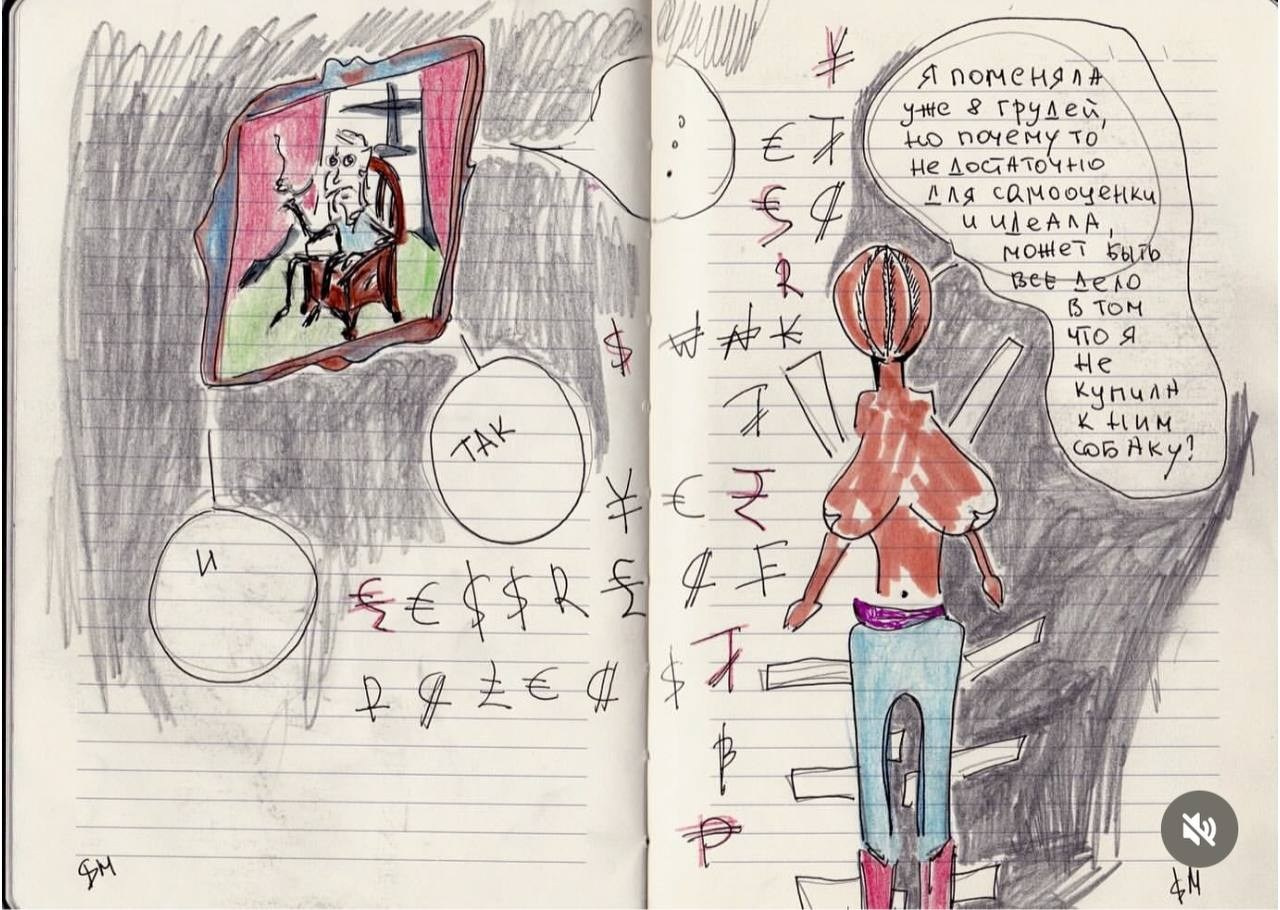 ТАК
И
€ € $ $ R £
$ ¥
¥
€ ₸
€ ₵
R
₩ ₦ K
₸
€ ₹
₵ F
$ ₸
B
₽
Я ПОМЕНЯЛА
УЖЕ 8 ГРУДЕЙ,
НО ПОЧЕМУ ТО
НЕДОСТАТОЧНО
ДЛЯ САМООЦЕНКИ
И ИДЕАЛА,
МОЖЕТ БЫТЬ
ВСЕ ДЕЛО
В ТОМ
ЧТО Я
НЕ
КУПИЛА
К НИМ
СОБАКУ?
$М
$М